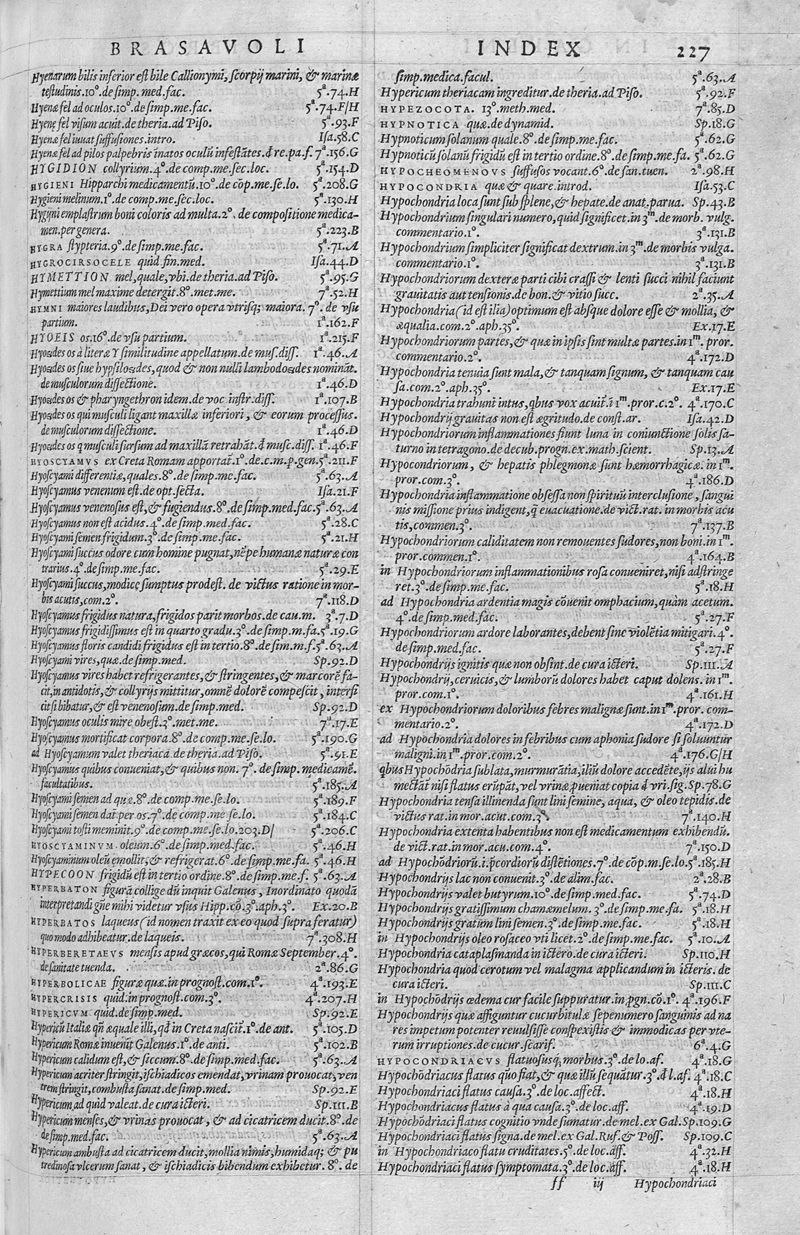 BRASAVOLI INDEX 227
Hyenarum bilis inferior est bile Callionymi, scorpij marini, & marinæ
testudinis.10°.de simp.med.fac. 5ª.74.H
Hyenæ fel ad oculos.10°.de simp.me.fac. 5ª.74.F|H
Hyenę fel visum acuit.de theria.ad Piso. 5ª.93.F
Hyenæ fel iuuat suffusiones.intro. Isa.58.C
Hyenæ fel ad pilos palpebris inatos oculū infestātes.d re.pa.f. 7ª.156.G
HYGIDION collyrium.4°.de comp.me.sec.loc. 5ª.154.D
HYGIENI Hipparchi medicamentū.10°.de cōp.me.se.lo. 5ª.208.G
Hygieni melinum.1°.de comp.me.sec.loc. 5ª.130.H
Hygini emplastrum boni coloris ad multa.2°. de compositione medica-
men.per genera. 5ª.223.B
HYGRA stypteria.9°.de simp.me.fac. 5ª.71.A
HYGROCIRSOCELE quid fin.med. Isa.44.D
HYMETTION mel,quale,vbi.de theria.ad Piso. 5ª.95.G
Hymettium mel maxime detergit.8°.met.me. 7ª.52.H
HYMNI maiores laudibus, Dei vero opera vtrisq; maiora. 7°. de vsu
partium. 1ª.162.F
HYOEIS os.16°.de vsu partium. 1ª.215.F
Hyoādes os à literæ Y similitudine appellatum.de mus.diss. 1ª.46.A
Hyoādes os siue hypsiloādes, quod & non nulli lambdoādes nomināt.
de musculorum dissectione. 1ª.46.D
Hyoādes os & pharyngethron idem.de voc instr.diss. 1ª.107.B
Hyoādes os qui musculi ligant maxillæ inferiori, & eorum processus.
de musculorum dissectione. 1ª.46.D
Hyoādes os q musculi sursum ad maxillā retrahāt.d musc.diss. 1ª.46.F
HYOSCYAMVS ex Creta Romam apportat̄.1°.de.c.m.p.gen.5ª.211.F
Hyoscyami differentiæ,quales.8°.de simp.me.fac. 5ª.63.A
Hyoscyamus venenum est.de opt.secta. Isa.21.F
Hyoscyamus venenosus est,& fugiendus.8°.de simp.med.fac.5ª.63.A
Hyoscyamus non est acidus.4°.de simp.med.fac. 5ª.28.C
Hyoscyami semen frigidum.3°.de simp.me.fac. 5ª.21.H
Hyoscyami succus odore cum homine pugnat,nēpe humanæ naturæ con
trarius.4°.de simp.me.fac. 5ª.29.E
Hyoscyami succus,modicę sumptus prodest. de victus ratione in mor-
bis acutis,com.2°. 7ª.118.D
Hyoscyamus frigidus natura,frigidos parit morbos.de cau.m. 3ª.7.D
Hyoscyamus frigidissimus est in quarto gradu.3°.de simp.m.fa.5ª.19.G
Hyoscyamus floris candidi frigidus est in tertio.8°.de sim.m.f.5ª.63.A
Hyoscyami vires,quæ.de simp.med. Sp.92.D
Hyoscyamus vires habet refrigerantes,& stringentes,& marcorē fa-
cit,in antidotis,& collyrijs mittitur,omnē dolorē compescit, interfi
cit si bibatur,& est venenosum.de simp.med. Sp.92.D
Hyoscyamus oculis mire obest.3°.met.me. 7ª.17.E
Hyoscyamus mortificat corpora.8°.de comp.me.se.lo. 5ª.190.G
ad Hyoscyamum valet theriaca.de theria.ad Piso. 5ª.91.E
Hyoscyamus quibus conueniat,& quibus non. 7°.de simp.medicamē.
facultatibus. 5ª.185.A
Hyoscyami semen ad quæ.8°.de comp.me.se.lo. 5ª.189.F
Hyoscyami semen dat̄ per os.7°.de comp.me.se.lo. 5ª.184.C
Hyoscyami tosti meminit.9°.de comp.me.se.lo.203.D| 5ª.206.C
HYOSCYAMINVM oleum.6°.de simp.med.fac. 5ª.46.H
Hyoscyaminum oleū emollit,& refrigerat.6°.de simp.me.fa. 5ª.46.H
HYPECOON frigidū est in tertio ordine.8°.de simp.me.f. 5ª.63.A
HYPERBATON figurā collige dū inquit Galenus, Inordinato quodā
interpretandi gn̄e mihi videtur vsus Hipp.cō.3°.aph.3°. Ex.20.B
HYPERBATOS laqueus (id nomen traxit ex eo quod supra feratur)
quo modo adhibeatur.de laqueis. 7ª.308.H
HYPERBERETAEVS mensis apud græcos,qui Romæ September.4°.
de sanitate tuenda. 2ª.86.G
HYPERBOLICAE figuræ quæ.in prognost.com.1°. 4ª.193.E
HYPERCRISIS quid.in prognost.com.3°. 4ª.207.H
HYPERICVM quid.de simp.med. Sp.92.E
Hypericū Italiæ qn̄ æquale illi,qd in Creta nascit̄.1°.de ant. 5ª.105.D
Hypericum Romæ inuenit Galenus.1°.de anti. 5ª.102.B
Hypericum calidum est,& siccum.8°.de simp.med.fac. 5ª.63.A
Hypericum acriter stringit,ischiadicos emendat, vrinam prouocat, ven
trem stringit,combusta sanat.de simp.med. Sp.92.E
Hypericum ad quid valeat.de cura icteri. Sp.111.B
Hypericum menses,& vrinas prouocat , & ad cicatricem ducit.8°.de
de simp.med.fac. 5ª.63.A
Hypericum ambusta ad cicatricem ducit,mollia nimis,humidaq; & pu
tredinosa vlcerum sanat , & ischiadicis bibendum exhibetur. 8°. de
simp.medica.facul. 5ª.63.A
Hypericum theriacam ingreditur.de theria.ad Piso. 5ª.92.F
HYPEZOCOTA. 13°.meth.med. 7ª.85.D
HYPNOTICA quæ.de dynamid. Sp.18.G
Hypnoticum solanum quale.8°.de simp.me.fac. 5ª.62.G
Hypnoticū solanū frigidū est in tertio ordine.8°.de simp.me.fa. 5ª.62.G
HYPOCHEOMENOVS suffusos vocant.6°.de san.tuen. 2ª.98.H
HYPOCONDRIA quæ & quare.introd. Isa.53.C
Hypochondria loca sunt sub splene,& hepate.de anat.parua. Sp.43.B
Hypochondrium singulari numero,quid significet.in 3ᵐ.de morb. vulg.
commentario.1°. 3ª.131.B
Hypochondrium simpliciter significat dextrum.in 3ᵐ.de morbis vulga.
commentario.1°. 3ª.131.B
Hypochondriorum dexteræ parti cibi crassi & lenti succi nihil faciunt
grauitatis aut tensionis.de bon.& vitio succ. 2ª.35.A
Hypochondria (id est ilia) optimum est absque dolore esse & mollia, &
æqualia.com.2°.aph.35°. Ex.17.E
Hypochondriorum partes,& quæ in ipsis sint multæ partes.in 1ᵐ. pror.
commentario.2°. 4ª.172.D
Hypochondria tenuia sunt mala,& tanquam signum, & tanquam cau
sa.com.2°.aph.35°. Ex.17.E
Hypochondria trahunt intus,qbus vox acuit̄.ī 1ᵐ.pror.c.2°. 4ª.170.C
Hypochondrij grauitas non est ægritudo.de const.ar. Isa.42.D
Hypochondriorum inflammationes fiunt luna in coniunctione solis sa-
turno in tetragono.de decub.progn.ex math.scient. Sp.13.A
Hypocondriorum, & hepatis phlegmonæ sunt hæmorrhagicæ. in 1ᵐ.
pror.com.3°. 4ª.186.D
Hypochondria inflammatione obsessa non spirituū interclusione, sangui
nis missione prius indigent,q̄ euacuatione.de vict.rat.in morbis acu
tis,commen.3°. 7ª.137.B
Hypochondriorum caliditatem non remouentes sudores,non boni.in 1ᵐ.
pror.commen.1°. 4ª.164.B
in Hypochondriorum inflammationibus rosa conueniret,nisi adstringe
ret.3°.de simp.me.fac. 5ª.18.H
ad Hypochondria ardentia magis cōuenit omphacium,quàm acetum.
4°.de simp.med.fac. 5ª.27.F
Hypochondriorum ardore laborantes,debent sine violētia mitigari.4°.
de simp.med.fac. 5ª.27.F
Hypochondrijs ignitis quæ non obsint.de cura icteri. Sp.111.A
Hypochondrij,ceruicis,& lumborū dolores habet caput dolens. in 1ᵐ.
pror.com.1°. 4ª.161.H
ex Hypochondriorum doloribus febres malignæ sunt.in 1ᵐ.pror. com-
mentario.2°. 4ª.172.D
ad Hypochondria dolores in febribus cum aphonia sudore si soluuntur
maligni.in 1ᵐ.pror.com.2°. 4ª.176.G|H
qbus Hypochōdria sublata,murmurātia,iliū dolore accedēte,ijs alui hu
mectāt nisi flatus erūpāt,vel vrinæ pueniat copia d vri.sig.Sp.78.G
Hypochondria tensa illinenda sunt lini semine, aqua, & oleo tepidis.de
victus rat.in mor.acut.com.3°. 7ª.140.H
Hypochondria extenta habentibus non est medicamentum exhibendū.
de vict.rat.in mor.acu.com.4°. 7ª.150.D
ad Hypochōdriorū.i.pcordiorū distētiones.7°.de cōp.m.se.lo.5ª.185.H
Hypochondrijs lac non conuenit.3°.de alim.fac. 2ª.28.B
Hypochondrijs valet butyrum.10°.de simp.med.fac. 5ª.74.D
Hypochondrijs gratissimum chamæmelum.3°.de simp.me.fa. 5ª.18.H
Hypochondrijs gratum lini semen.3°.de simp.me.fac. 5ª.18.H
in Hypochondrijs oleo rosaceo vti licet.2°.de simp.me.fac. 5ª.10.A
Hypochondria cataplasmanda in ictero.de cura icteri. Sp.110.H
Hypochondria quod cerotum vel malagma applicandum in icteris. de
cura icteri. Sp.111.C
in Hypochōdrijs œdema cur facile suppuratur.in pgn.cō.1°. 4ª.196.F
Hypochondrijs quæ affiguntur cucurbitulæ sepenumero sanguinis ad na
res impetum potenter reuulsisse conspexistis & immodicas per vte-
rum irruptiones.de cucur.scarif. 6ª.4.G
HYPOCONDRIACVS flatuosusq, morbus.3°.de lo.af. 4ª.18.G
Hypochōdriacus flatus quo fiat,& quæ illū sequātur.3°.d l.af. 4ª.18.C
Hypochondriaci flatus causa.3°.de loc.affect. 4ª.18.H
Hypochondriacus flatus à qua causa.3°.de loc.aff. 4ª.19.D
Hypochōdriaci flatus cognitio vnde sumatur.de mel.ex Gal.Sp.109.G
Hypochondriaci flatus signa.de mel.ex Gal.Ruf.& Poss. Sp.109.C
in Hypochondriaco flatu cruditates.5°.de loc.aff. 4ª.32.H
Hypochondriaci flatus symptomata.3°.de loc.aff. 4ª.18.H
ff iij Hypochondriaci